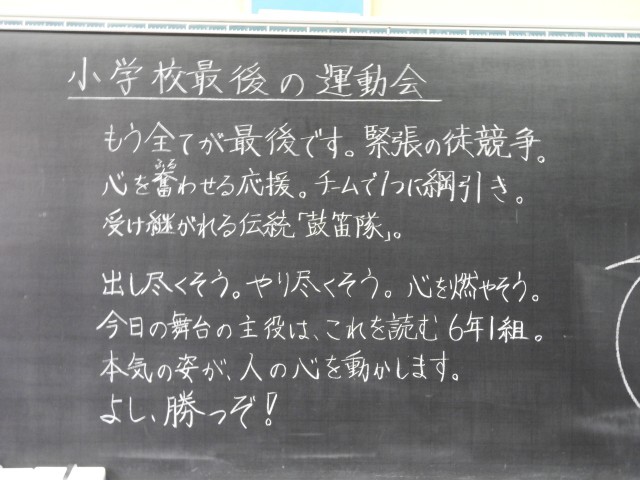 小学校最後の運動会
もう全てが最後です。緊張の徒競争。
心を奮わせる応援。チームで1つに綱引き。
ふる
受け継がれる伝統「鼓笛隊」。
出し尽くそう。やり尽くそう。心を燃やそう。
今日の舞台の主役は、これを読む6年1組。
本気の姿が、人の心を動かします。
よし、勝つぞ!